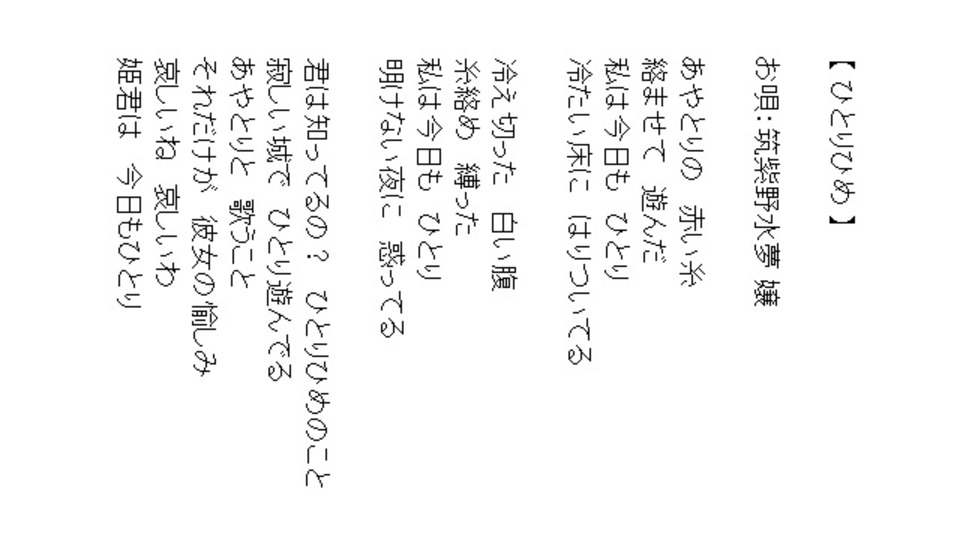 【 ひとりひめ 】
お唄：筑紫野水夢 嬢
あやとりの　赤い糸
絡ませて　遊んだ
私は今日も　ひとり
冷たい床に　はりついてる
冷え切った　白い腹
糸絡め　縛った
私は今日も　ひとり
明けない夜に　惑ってる
君は知ってるの？　ひとりひめのこと
寂しい城で　ひとり遊んでる
あやとりと　歌うこと
それだけが　彼女の愉しみ
哀しいね　哀しいわ
姫君は　今日もひとり